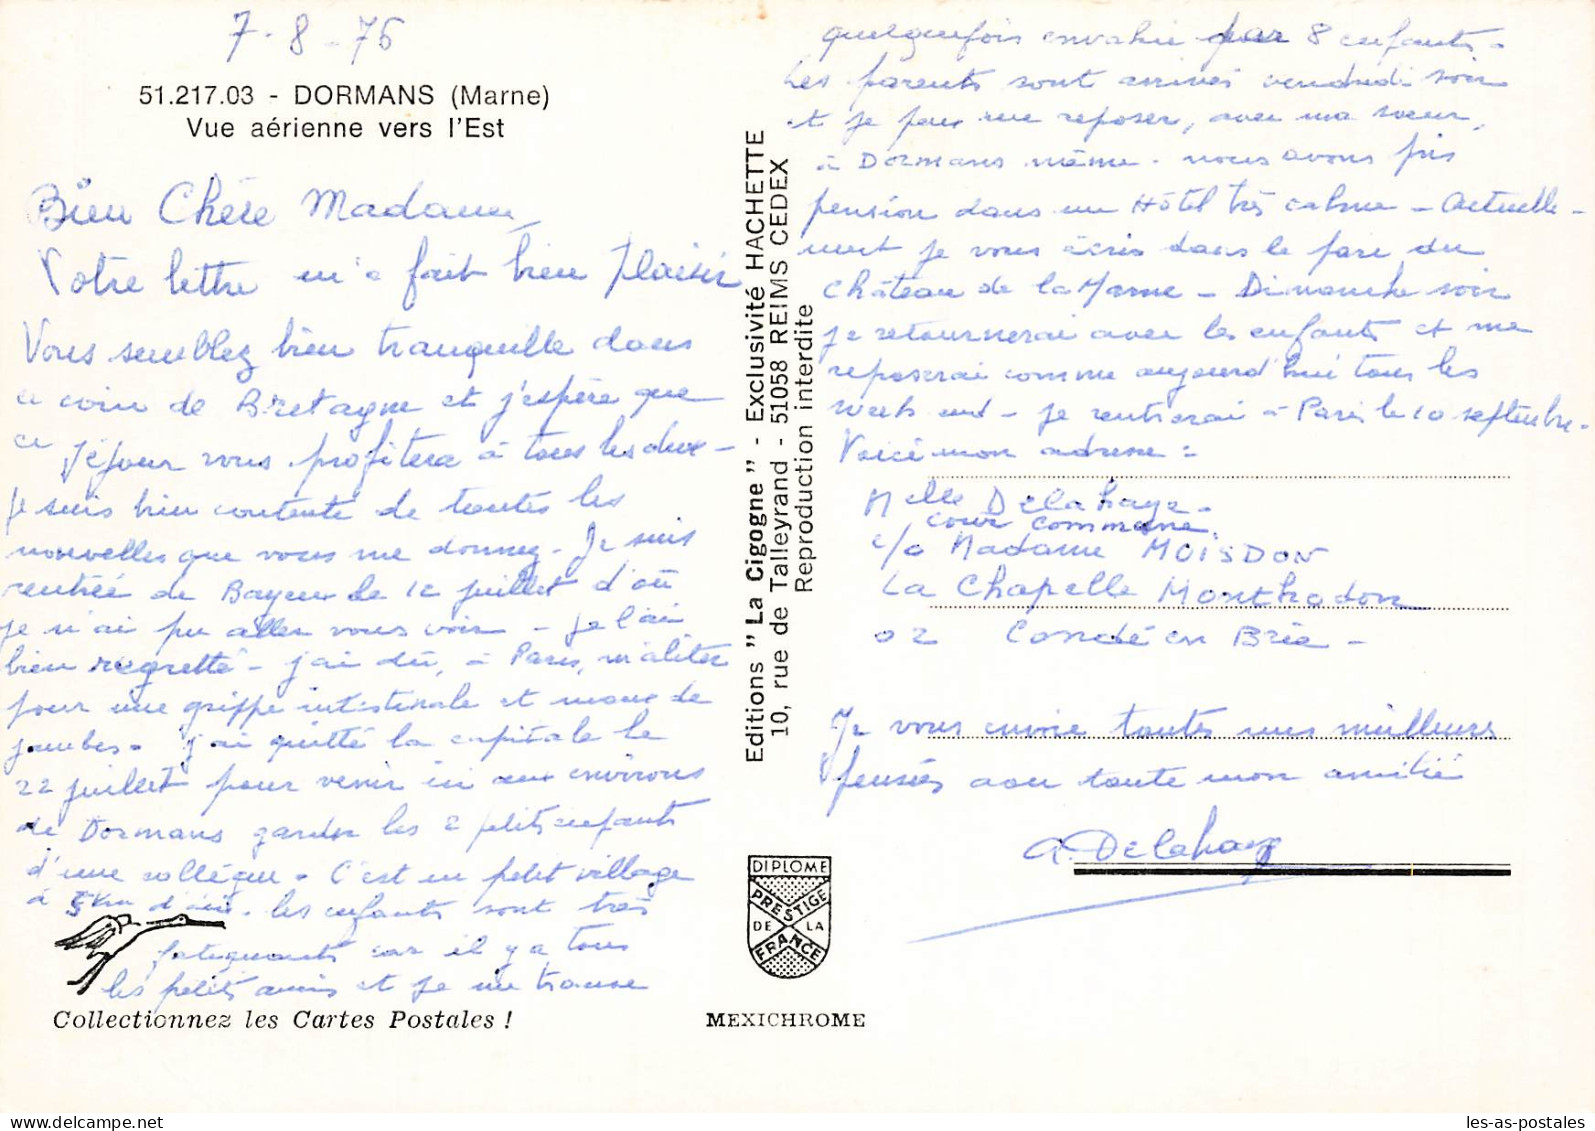 7-8-76
51.217.03 - DORMANS (Marne)
Vue aérienne vers l'Est
Bien Chère Madame,
Votre lettre m'a fait bien plaisir
Vous semblez bien tranquille dans
ce coin de Bretagne et j'espère que
ce séjour vous profitera à tous les deux -
Je suis bien contente de toutes les
nouvelles que vous me donnez. Je suis
rentrée de Bayeux le 12 juillet d'où
je n'ai pu aller vous voir - Je l'ai
bien regretté - j'ai dû, à Paris, m'aliter
pour une grippe intestinale et maux de
jambes. j'ai quitté la capitale le
22 juillet pour venir ici aux environs
de Dormans garder les 2 petits enfants
d'une collègue. C'est un petit village
à 5 km d'ici. les enfants sont très
fatiguants car il y a tous
les petits amis et je me trouve
Collectionnez les Cartes Postales !
Editions "La Cigogne" - Exclusivité HACHETTE
10, rue de Talleyrand - 51058 REIMS CEDEX
Reproduction interdite
DIPLOME
PRESTIGE
DE LA
FRANCE
MEXICHROME
quelquefois envahie par 8 enfants.
Les parents sont arrivés vendredi soir
et je peux me reposer, avec ma soeur,
à Dormans même. nous avons pris
pension dans un Hôtel très calme - Actuelle-
ment je vous écris dans le parc du
château de la Marne - Dimanche soir
je retournerai avec les enfants et me
reposerai comme aujourd'hui tous les
week end - Je rentrerai à Paris le 10 septembre.
Voici mon adresse :
Melle Delahaye.
cour commune
c/o Madame MOISDON
La Chapelle Monthodon
02 Condé en Brie -
Je vous envoie toutes mes meilleures
pensées avec toute mon amitié
A. Delahaye
les-as-postales.com